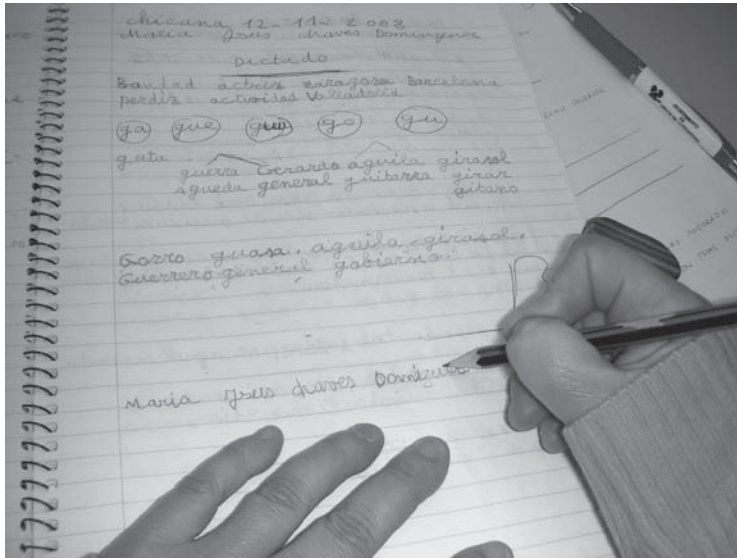 chicana 12-11-2008
Maria Jesus chaves Dominguez
Dictado
Bondad actriz zaragoza Barcelona
perdiz - actividad Valladolid
ga gue gui go gu
gata
guerra Gerardo aguila girasol
Agueda general guitarra girar
gitano
Gorro guasa. aguila. girasol.
Guerrero general gobierno.
Maria Jesus chaves